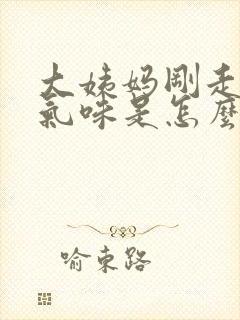 大姨妈刚走
氣味是怎麼
喻東路